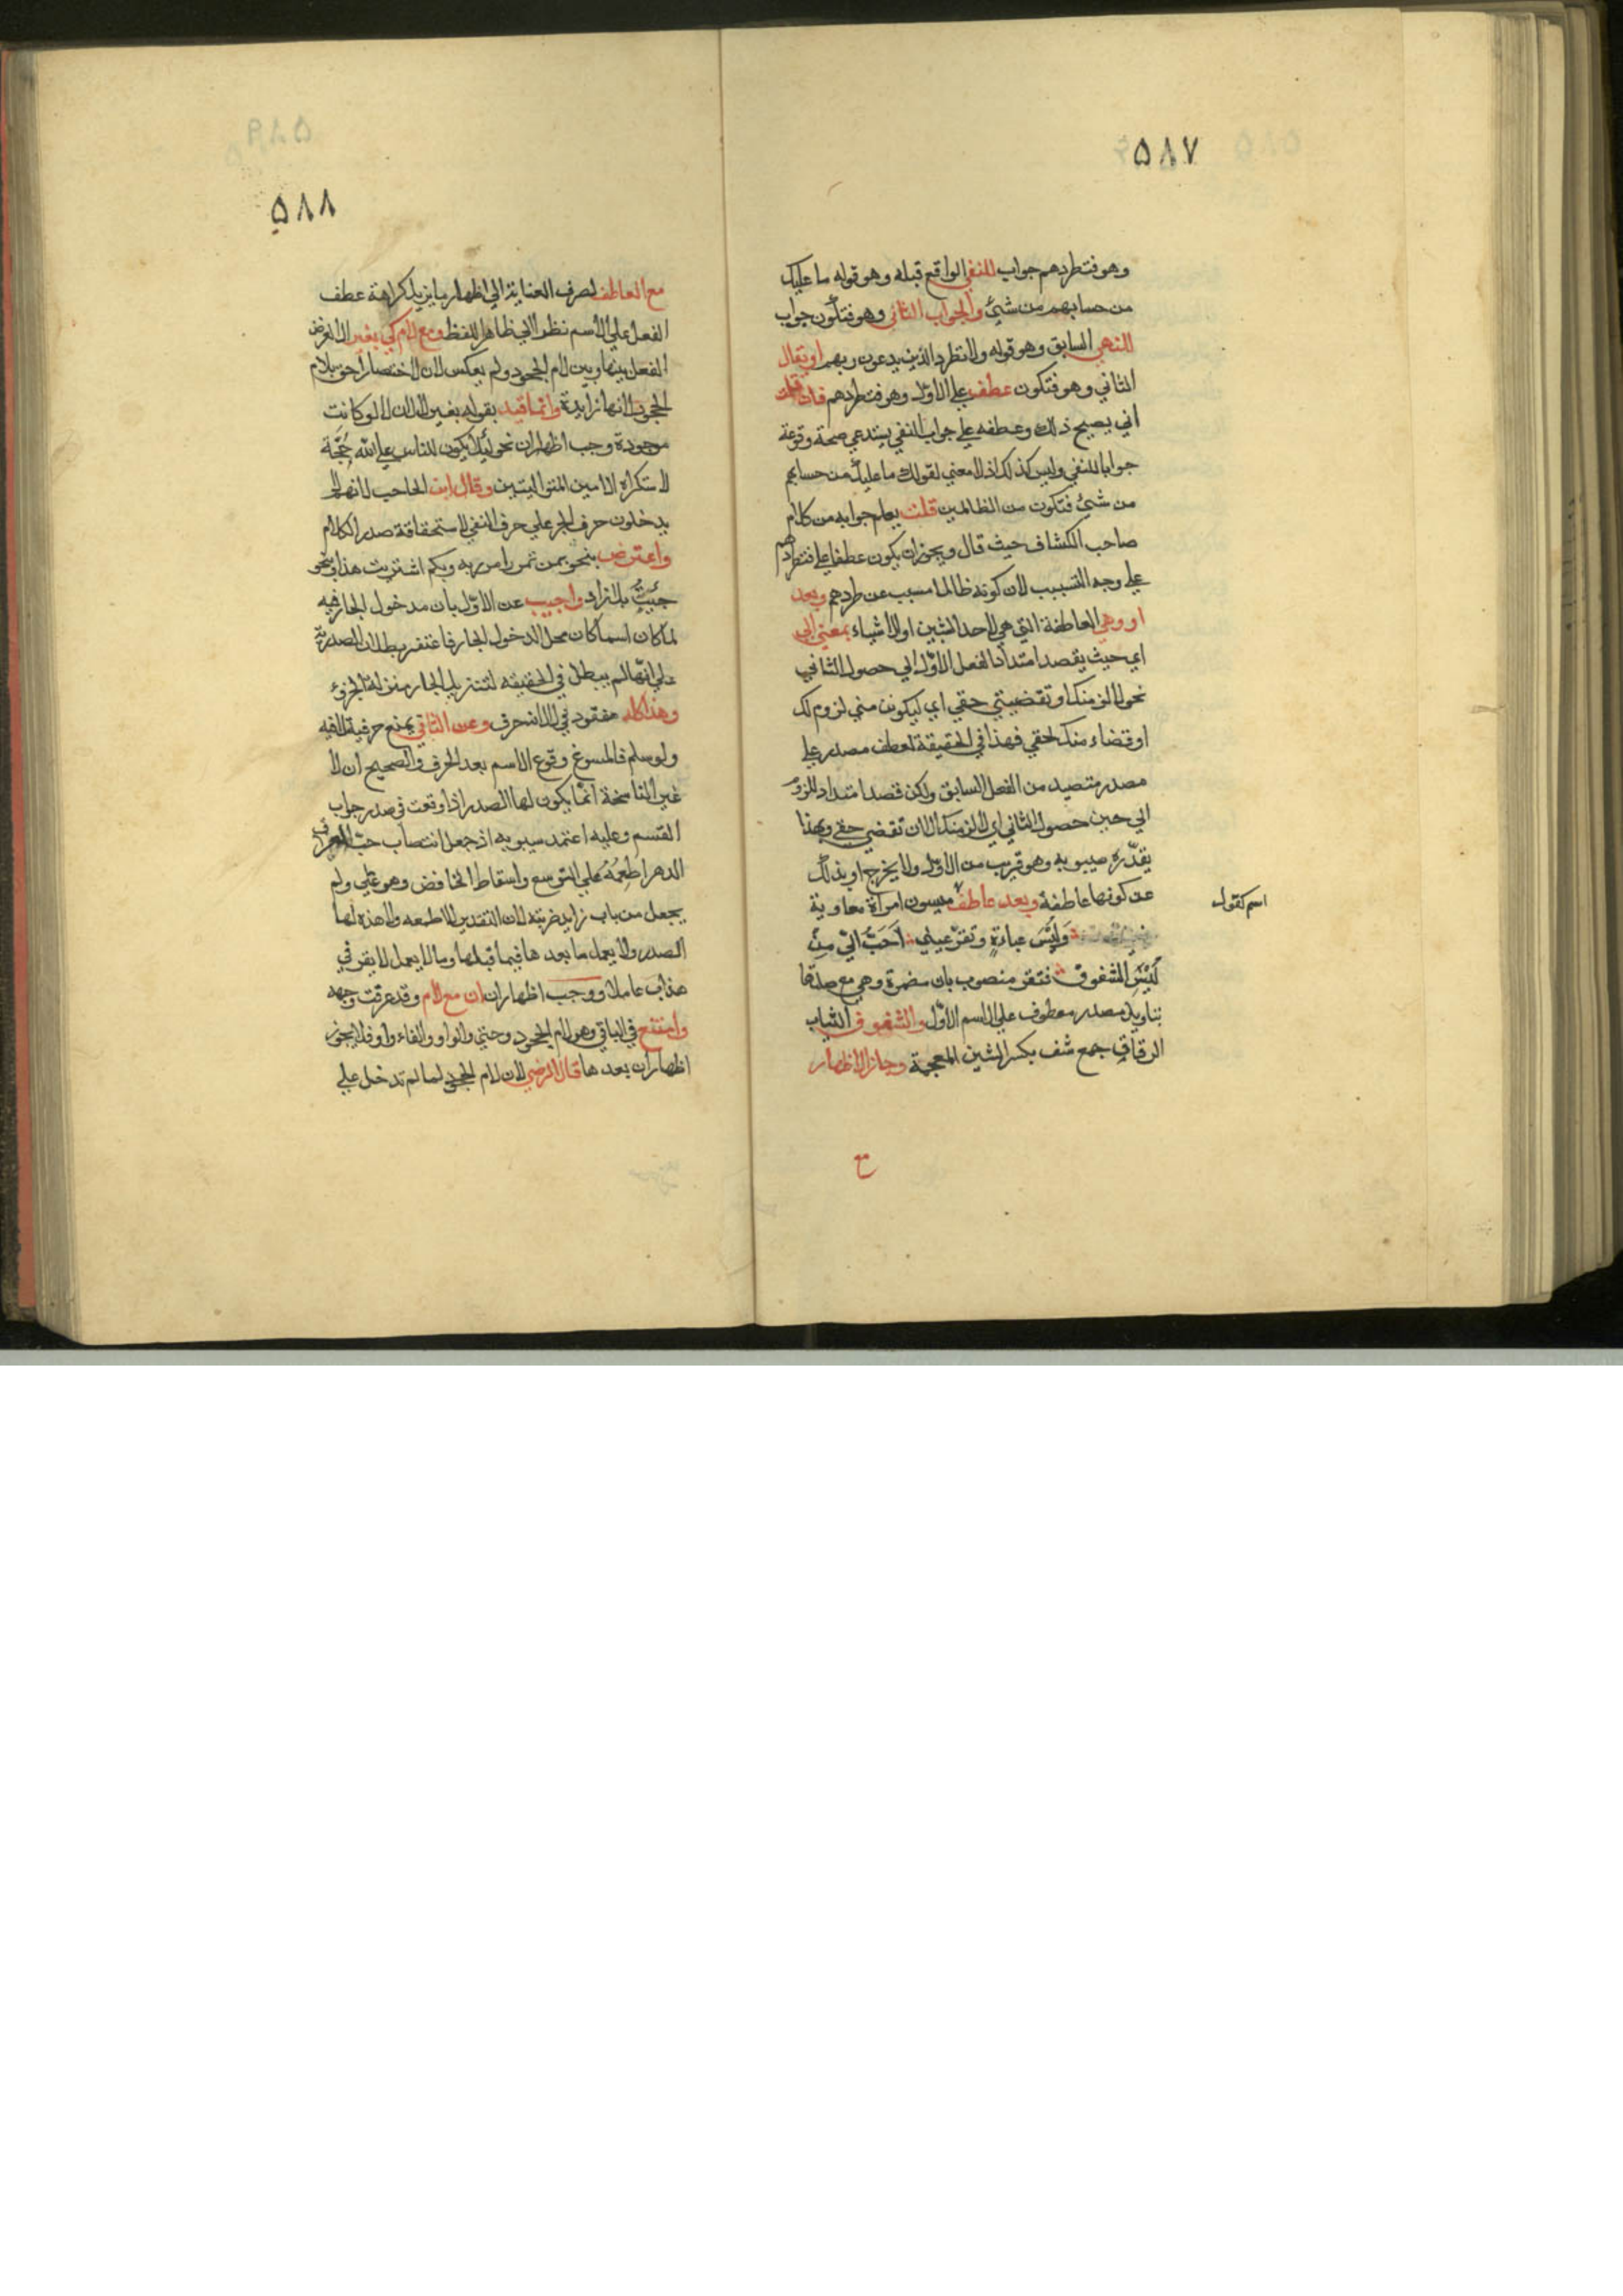 ٥٨٧
وهو فتطردهم جواب للنفي الواقع قبله وهو قوله ما عليك
من حسابهم من شئ والجواب الثاني وهو فتكون جواب
للنهي السابق وهو قوله ولا تطرد الذين يدعون ربهم او يقال
الثاني وهو فتكون عطف علي الاول وهو فتطردهم فان قلت
اني يصيح ذلك وعطفه علي جواب النفي يستدعي صحة وقوعة
جوابا للنفي وليس كذلك اذ لا معني لقولك ما عليك من حسابهم
من شئ فتكون من الظالمين قلت يعلم جوابه من كلام
صاحب الكشاف حيث قال ويجوز ان يكون عطفا علي فتطردهم
علي وجه التسبيب لان كونه ظالما مسبب عن طردهم وبعد
او وهي العاطفة التي هي لاحد الشيين او الاشياء بمعني الي
اي حيث يقصد امتداد الفعل الاول الي حصول الثاني
نحو لالزمنك او تقضيتي حقي اي ليكونن مني لزوم لك
او قضاء منك لحقي فهذا في الحقيقة لعطف مصدر علي
مصدر متصيد من الفعل السابق ولكن قصد امتداد للزوم
الي حين حصول الثاني اي لالزمنك الا ان تقضي حقي وبهذا
يقدره سيبويه وهو قريب من الاول ولا يخرج او بذلك
عن كونها عاطفة وبعد عاطف ميسون امراة معاوية
اسم كقول
وَلُبْسُ عباءةٍ وتقرّ عيني احَبُّ اليّ مِنْ
لُبْسِ الشفوف فتقر منصوب بان مضمرة وهي مع صلتها
بتاويل مصدر معطوف علي الاسم الاول والشفوف الثياب
الرقاق جمع شف بكسر الشين المعجمة وجاز الاظهار
مع
٥٨٨
مع العاطف لصرف العناية الي اظهار ما يزيل كراهة عطف
الفعل علي الاسم نظرا الي ظاهر اللفظ ومع لام كي بغير لا للفرض
الفعل بينها وبين لام الجحود ولم يعكس لان الاختصار احق بلام
الجحود لانها زايدة وانما قيد بقوله بغير لا لان لا لو كانت
موجودة وجب اظهار ان نحو لئلا يكون للناس علي الله حُجّة
لاستكراه اللامين المتواليتين وقال ابن الحاجب لانهم لا
يدخلون حرف الجر علي حرف النفي لاستحقاقة صدر الكلام
واعترض بنحو بمن تمرر امرر به وبكم اشتريت هذا وبنحو
جئتُ بلا زاد واجيب عن الاوّل بان مدخول الجار فيه
لما كان اسما كان محل الدخول الجار فاغتفر بطلان الصدرية
علي انها لم يبطل في الحقيقه لتنزيل الجار منزلة الجزؤ
وهذا كله مفقود في لا لانه حرف وعن الثاني بمنع حرفية لا فيه
ولو سلم فالمسوغ وقوع الاسم بعد الحرف والصحيح ان لا
غير الناسخة انما يكون لها الصدر اذا وقعت في صدر جواب
القسم وعليه اعتمد سيبويه اذ جعل انتصاب حبّ العراق
الدهر اطعمه علي التوسع واسقاط الخافض وهو علي ولم
يجعل من باب زايد ضربته لان التقدير لا اطعمه ولا هذه لها
الصدر ولا يعمل ما بعدها فيما قبلها وما لا يعمل لا يفسر في
هذا الباب عاملا ووجب اظهار ان مع لام وقد عرفت وجهه
وامتنع في الباقي وهو لام الجحود وحتي والواو والفاء واو فلا يجوز
اظهار ان بعدها قال الرضي لان لام الجحود لما لم تدخل علي